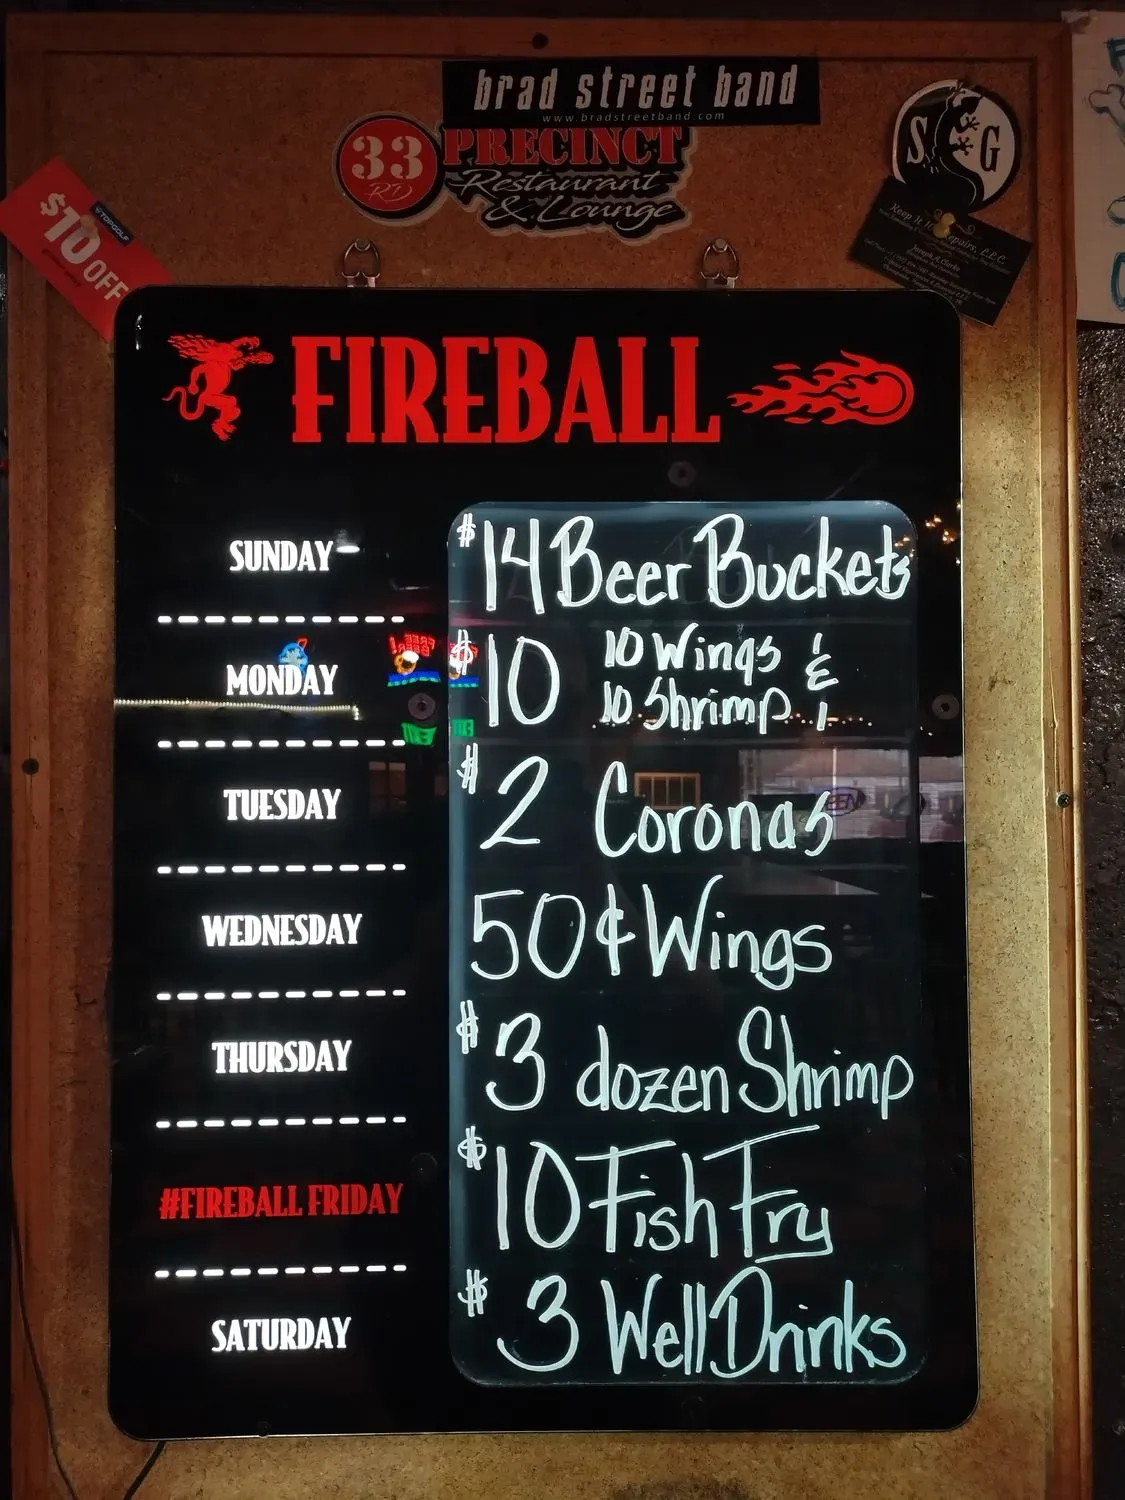 brad street band
www.bradstreetband.com
33
RD
PRECINCT
Restaurant
& Lounge
S G
$10 OFF
TOPGOLF
Keep It Repairs, L.L.C.
Joseph A. Clarke
FIREBALL
SUNDAY
$14 Beer Buckets
MONDAY
$10 10 Wings &
10 Shrimp
TUESDAY
$2 Coronas
WEDNESDAY
50¢ Wings
THURSDAY
$3 dozen Shrimp
#FIREBALL FRIDAY
$10 Fish Fry
SATURDAY
$3 Well Drinks